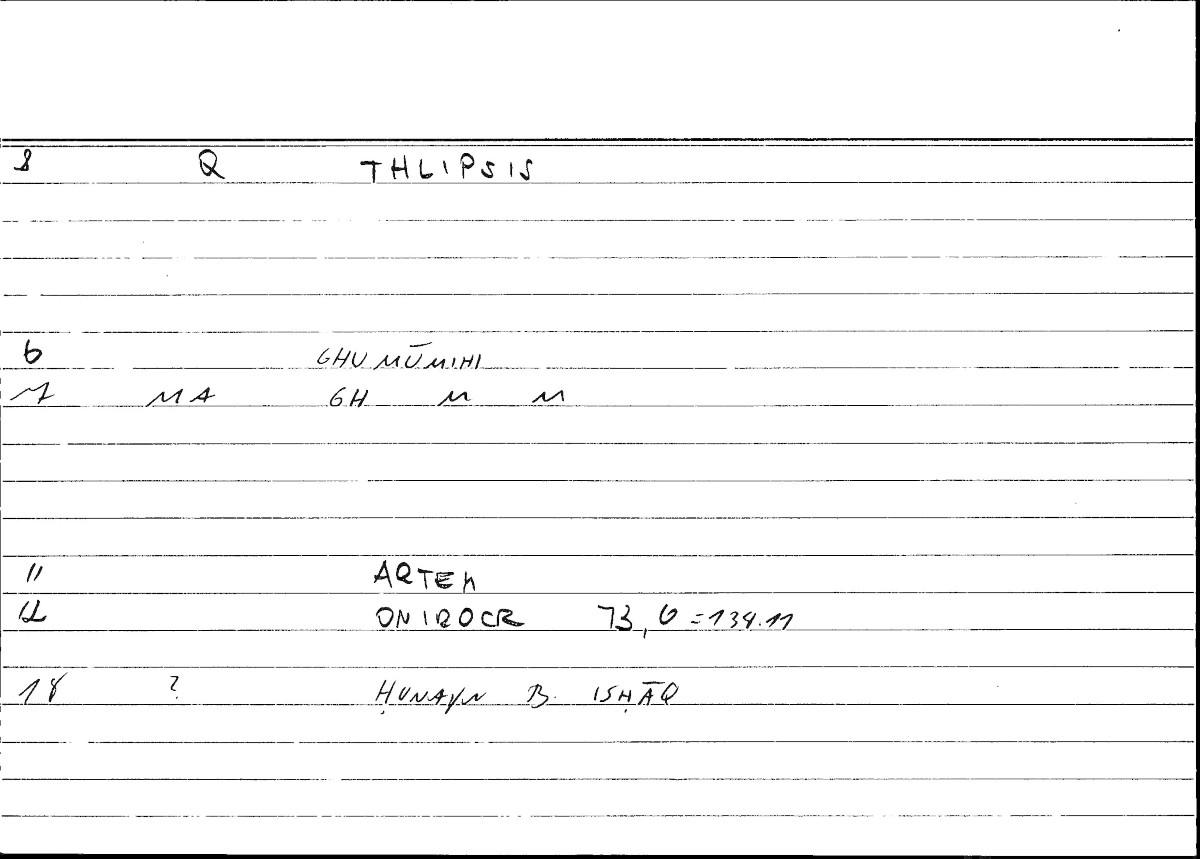 8 Q THLIPSIS
6 GHUMŪMIHI
7 MA GH M M
11 ARTEM
12 ONIROCR 73,6 = 134.11
18 ? ḤUNAYN B. ISḤĀQ